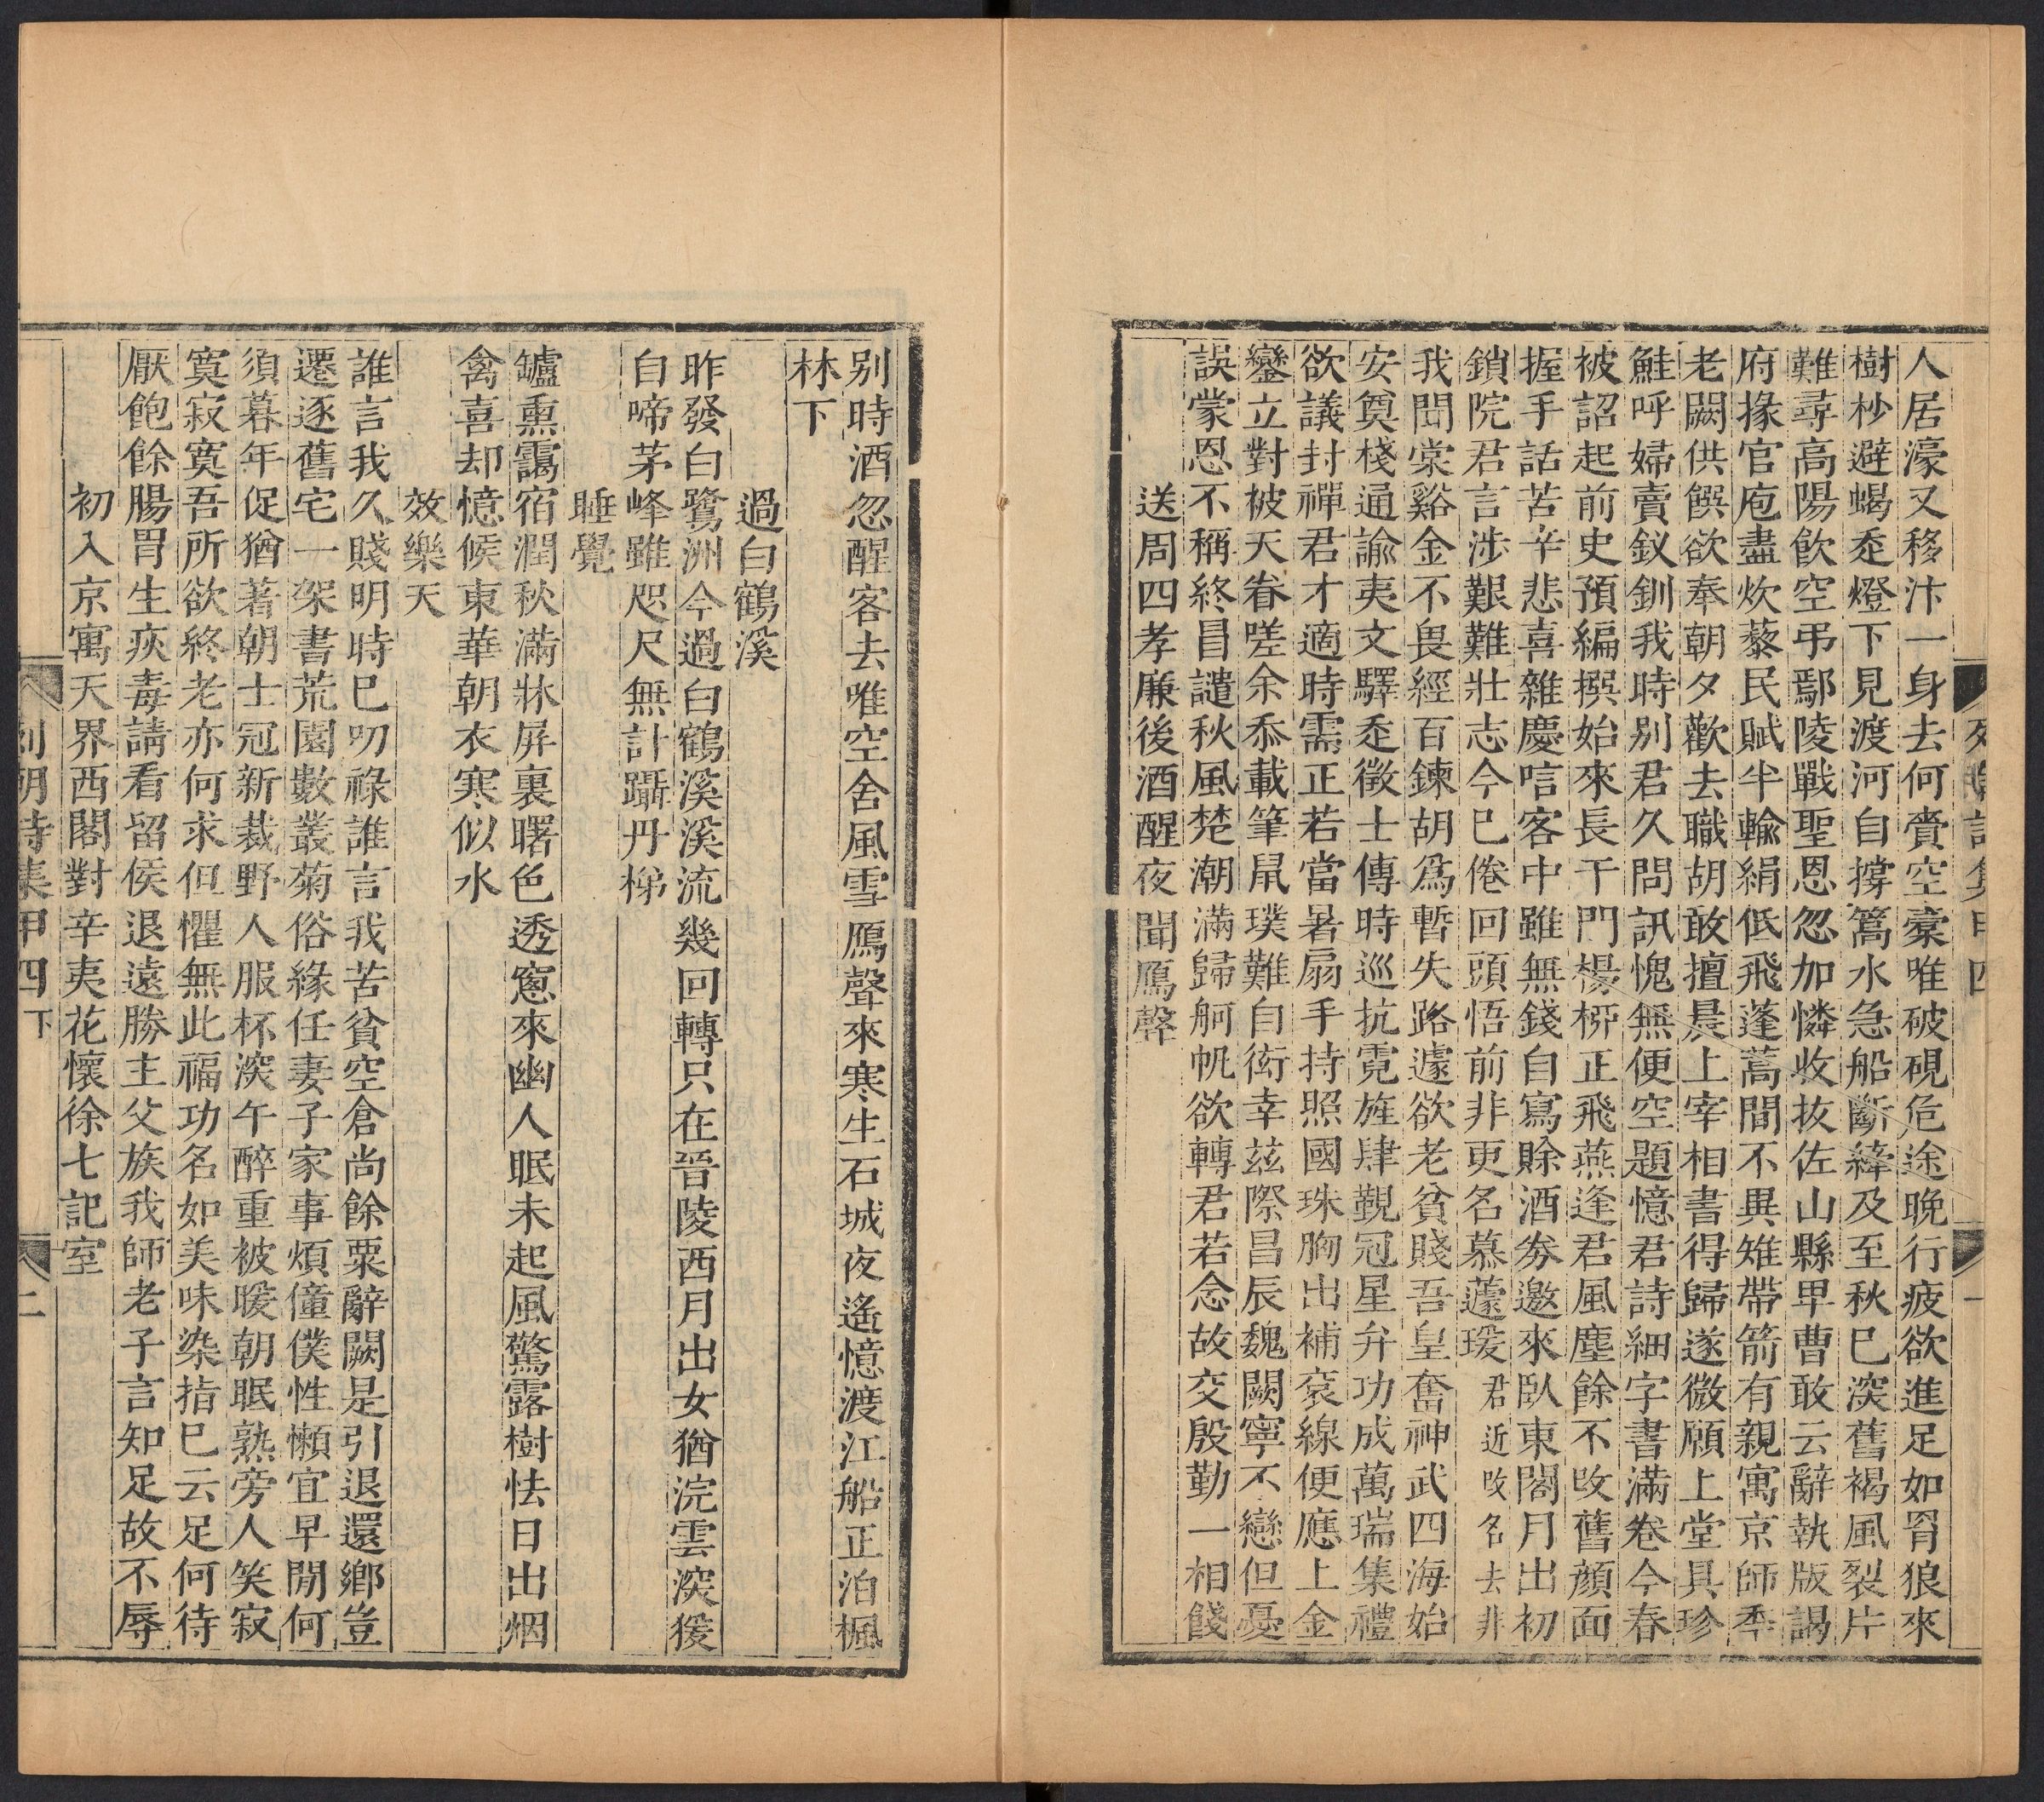 人居濠又移汴一身去何賫空槖唯破硯危途晚行疲欲進足如罥狼來
樹杪避蝎𡗗燈下見渡河自撐篙水急船斷縴及至秋巳深舊褐風裂片
難尋高陽飲空弔鄢陵戰聖恩忽加憐收抜佐山縣卑曹敢云辭執版謁
府掾官庖盡炊藜民賦半輸絹低飛蓬蒿間不異雉帶箭有親寓京師年
老闕供饌欲奉朝夕歡去職胡敢擅晨上宰相書得歸遂微願上堂具珍
鮭呼婦賣釵釧我時别君久問訊愧無便空題憶君詩細字書滿卷今春
被詔起前史預編撰始來長干門楊栁正飛燕逢君風塵餘不改舊顔面
握手話苦辛悲喜雜慶唁客中雖無錢自寫賒酒券邀來臥東閣月出初
鎖院君言涉艱難壯志今巳倦回頭悟前非更名慕蘧瑗君近改名去非
我聞棠谿金不畏經百鍊胡爲暫失路遽欲老貧賤吾皇奮神武四海始
安奠棧通諭夷文驛走徵士傳時巡抗霓旌肆覲冠星弁功成萬瑞集禮
欲議封禪君才適時需正若當暑扇手持照國珠胸出補衮線便應上金
鑾立對被天眷嗟余忝載筆鼠璞難自衒幸兹際昌辰魏闕寧不戀但憂
誤蒙恩不稱終冒譴秋風楚潮滿歸舸帆欲轉君若念故交殷勤一相餞
送周四孝廉後酒醒夜聞鴈聲
别時酒忽醒客去唯空舍風雪鴈聲來寒生石城夜遙憶渡江船正泊楓
林下
過白鶴溪
昨發白鷺洲今過白鶴溪溪流幾回轉只在晉陵西月出女猶浣雲深猨
自啼茅峰雖咫尺無計躡丹梯
睡覺
鑪熏靄宿潤秋滿牀屏裏曙色透窻來幽人眠未起風驚露樹怯日出烟
禽喜却憶候東華朝衣寒似水
效樂天
誰言我久賤明時巳叨祿誰言我苦貧空倉尚餘粟辭闕是引退還鄉豈
遷逐舊宅一架書荒園數叢菊俗緣任妻子家事煩僮僕性懶宜早閒何
須暮年促猶著朝士冠新裁野人服杯深午醉重被暖朝眠熟旁人笑寂
寞寂寞吾所欲終老亦何求但懼無此福功名如美味染指巳云足何待
厭飽餘腸胃生疢毒請看留侯退遠勝主父族我師老子言知足故不辱
初入京寓天界西閣對辛夷花懷徐七記室
列朝詩集甲四下 二